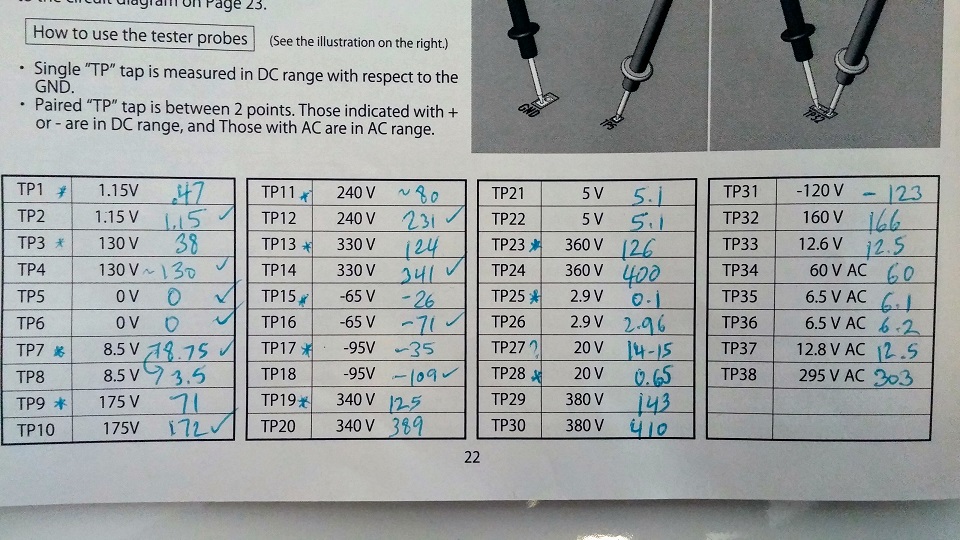 to the circuit diagram on Page 23.
How to use the tester probes (See the illustration on the right.)
• Single "TP" tap is measured in DC range with respect to the
GND.
• Paired "TP" tap is between 2 points. Those indicated with +
or - are in DC range, and Those with AC are in AC range.
GND
TP32
TP1 * 1.15V .47
TP2 1.15 V 1.15 ✓
TP3 * 130 V 38
TP4 130 V ~130 ✓
TP5 0 V 0 ✓
TP6 0 V 0 ✓
TP7 * 8.5 V 8.75 ✓
TP8 8.5 V 3.5
TP9 * 175 V 71
TP10 175V 172 ✓
TP11 * 240 V ~80
TP12 240 V 231 ✓
TP13 * 330 V 124
TP14 330 V 341 ✓
TP15 * -65 V -26
TP16 -65 V -71 ✓
TP17 * -95V -35
TP18 -95V -109 ✓
TP19 * 340 V 125
TP20 340 V 389
TP21 5 V 5.1
TP22 5 V 5.1
TP23 * 360 V 126
TP24 360 V 400
TP25 * 2.9 V 0.1
TP26 2.9 V 2.96
TP27 ? 20 V 14-15
TP28 * 20 V 0.65
TP29 380 V 143
TP30 380 V 410
TP31 -120 V -123
TP32 160 V 166
TP33 12.6 V 12.5
TP34 60 V AC 60
TP35 6.5 V AC 6.1
TP36 6.5 V AC 6.2
TP37 12.8 V AC 12.5
TP38 295 V AC 303
22